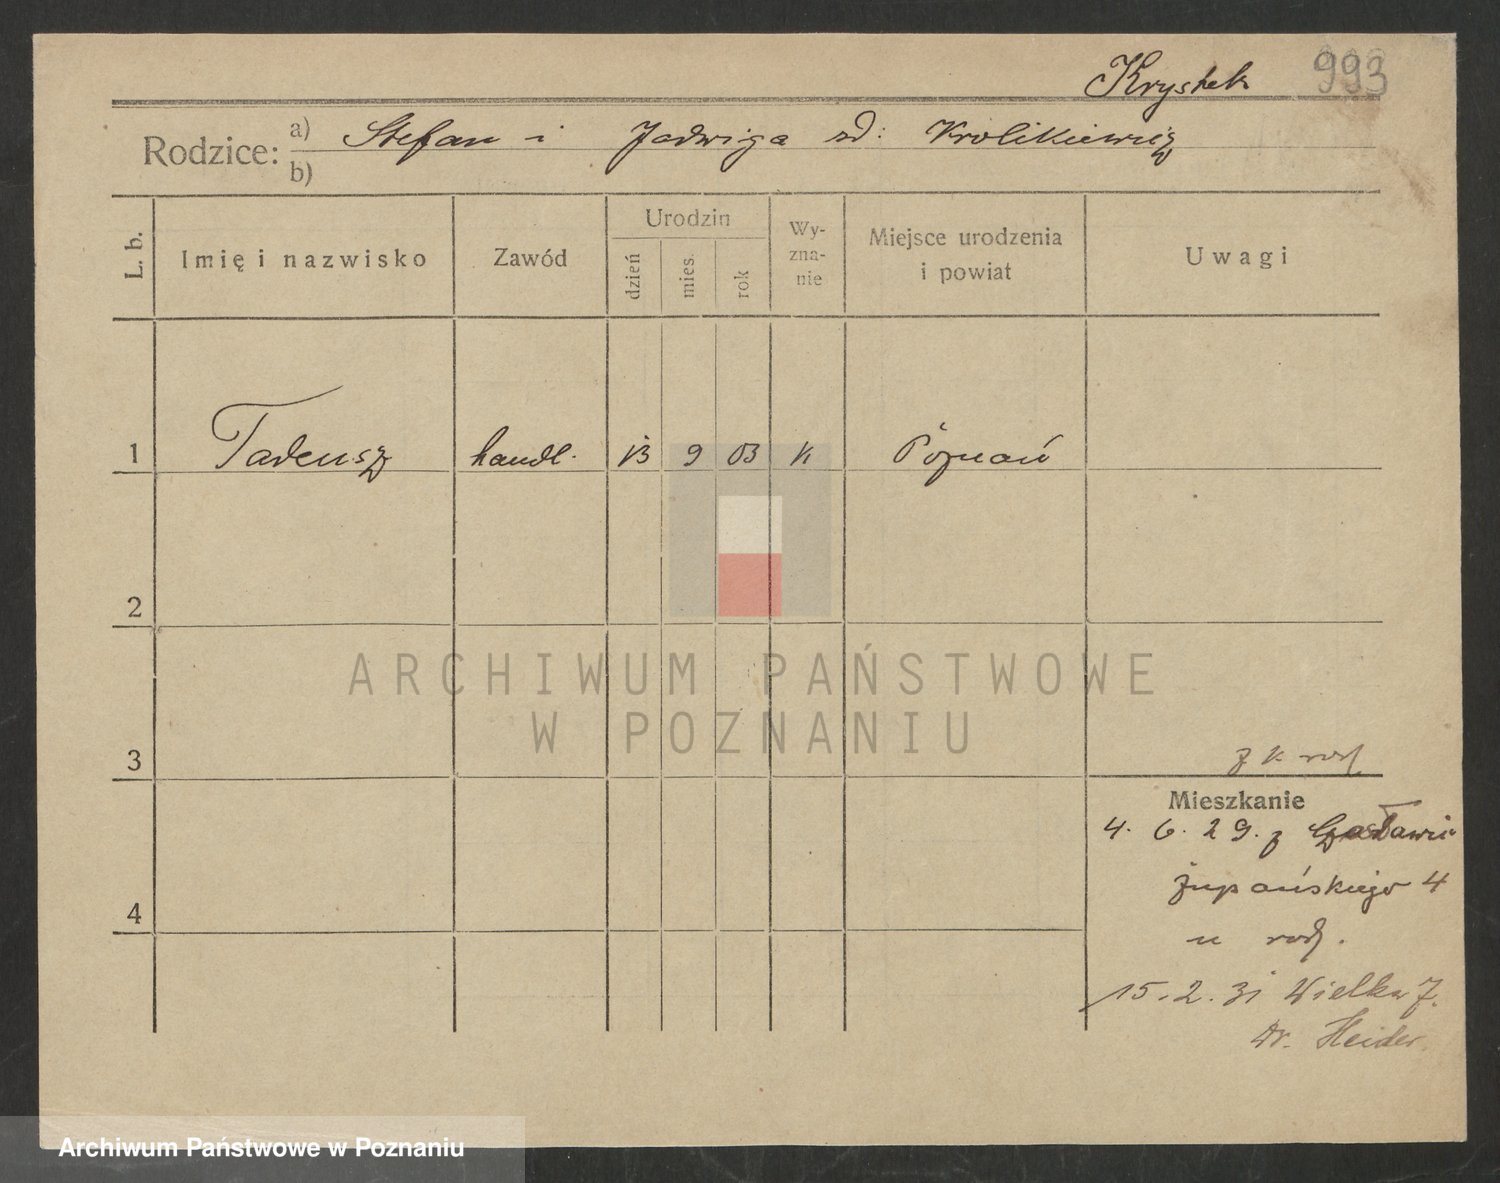 Krysztek 993
Rodzice: a) Stefan i Jadwiga zd: Królikiewicz
b)
L. b. Imię i nazwisko Zawód Urodzin dzień mies. rok Wyznanie Miejsce urodzenia i powiat Uwagi
1 Tadeusz handl. 13 9 03 k Poznań
2
3
z k rodz.
Mieszkanie
4. 6. 29. z
Żupańskiego 4
u rodz.
15. 2. 31 Wielka 7.
Dr. Heider
4
ARCHIWUM PAŃSTWOWE
W POZNANIU
Archiwum Państwowe w Poznaniu